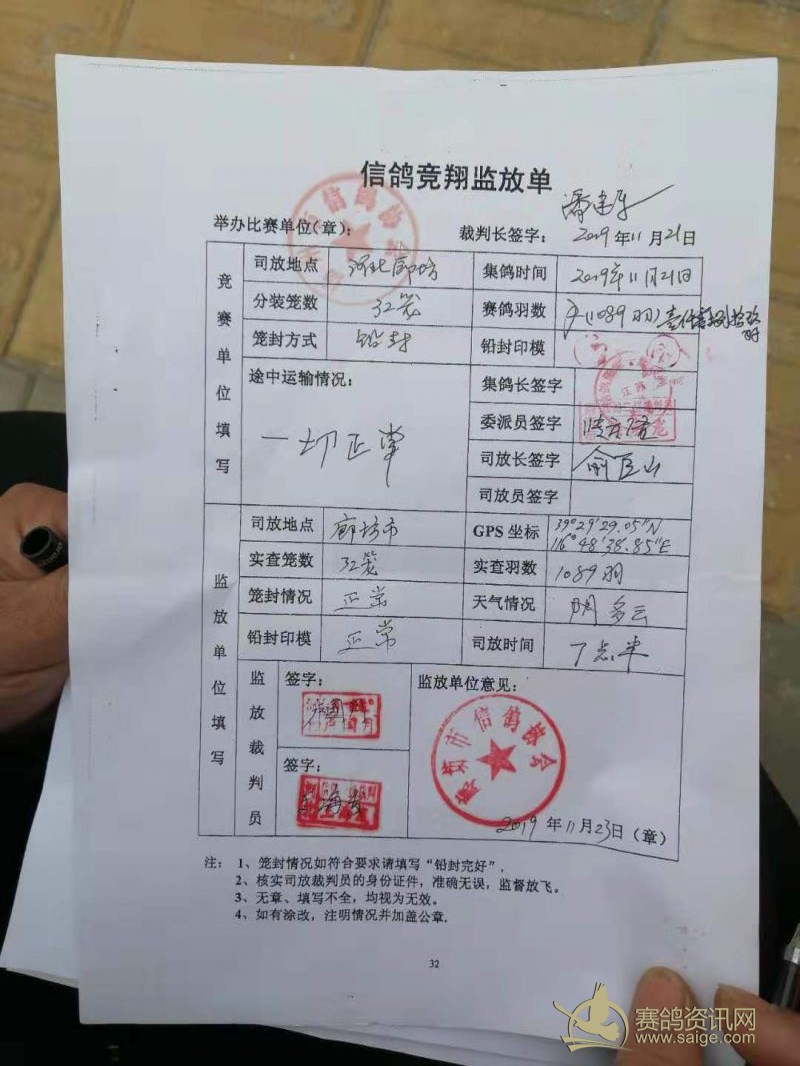 信鸽竞翔监放单
举办比赛单位(章): 裁判长签字:
2019年11月21日
竞赛单位填写
司放地点 河北廊坊 集鸽时间 2019年11月21日
分装笼数 32笼 赛鸽羽数 1089羽
笼封方式 铅封 铅封印模
途中运输情况: 一切正常
集鸽长签字
委派员签字
司放长签字 俞巨山
司放员签字
监放单位填写
司放地点 廊坊市 GPS 坐标 39°29'29.05"N
116°48'38.85"E
实查笼数 32笼 实查羽数 1089羽
笼封情况 正常 天气情况 多云
铅封印模 正常 司放时间 7点半
监放裁判员
签字:
签字:
监放单位意见:
廊坊市信鸽协会
2019年11月23日(章)
注: 1、笼封情况如符合要求请填写“铅封完好”.
2、核实司放裁判员的身份证件，准确无误，监督放飞。
3、无章、填写不全，均视为无效。
4、如有涂改，注明情况并加盖公章.
32
赛鸽资讯网
www.saige.com